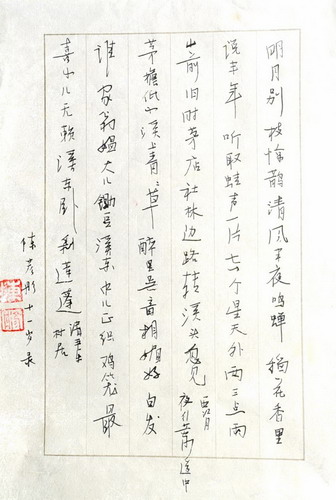 明月别枝惊鹊清风半夜鸣蝉 稻花香里
说丰年 听取蛙声一片 七八个星天外两三点雨
山前旧时茅店社林边路转溪头忽见 西江月
夜行黄沙道中
茅檐低小溪上青々草 醉里吴音相媚好白发
谁家翁媪大儿锄豆溪东中儿正织鸡笼最
喜小儿无赖溪头卧剥莲蓬 清平乐
村居
陈彦彤十一岁录